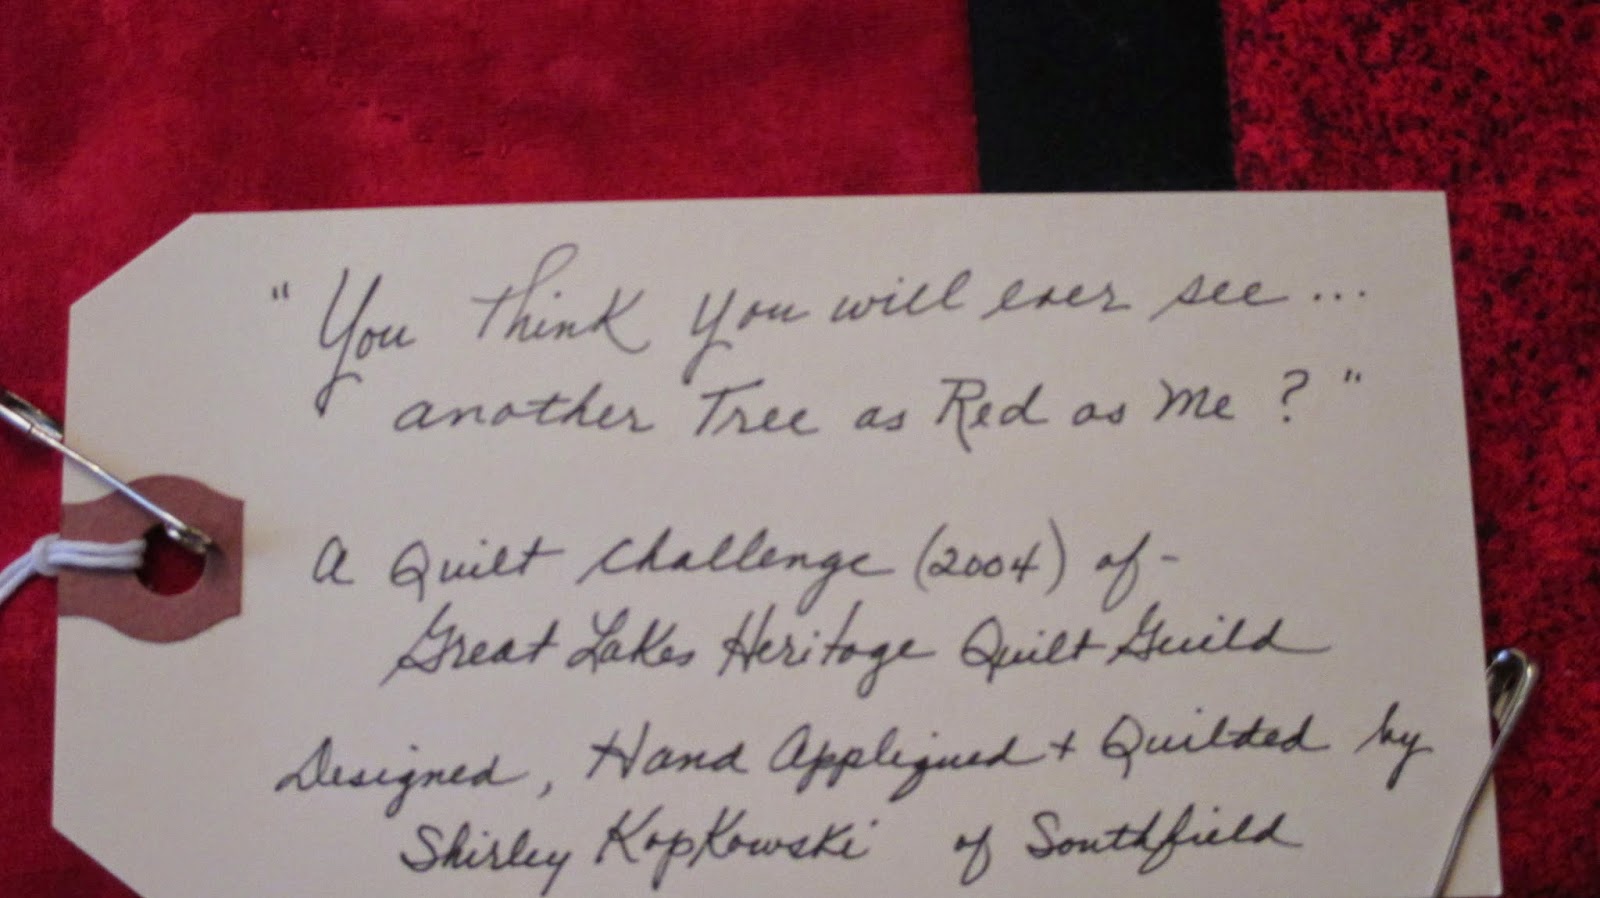 "You think you will ever see...
another Tree as Red as Me?"
A Quilt Challenge (2004) of -
Great Lakes Heritage Quilt Guild
Designed, Hand Appliqued + Quilted by
Shirley Kopkowski of Southfield